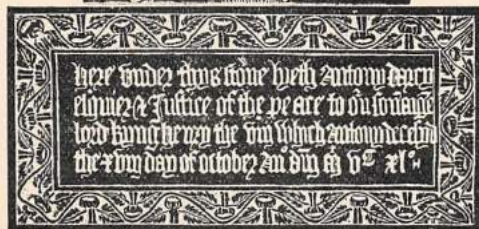 here vnder thys stone lyeth Antony darcy
esquier & Justice of the peace to our souraigne
lord kyng henry the viii which antony decessid
the xviii day of october An° dn̄i m̄ v^c xl°